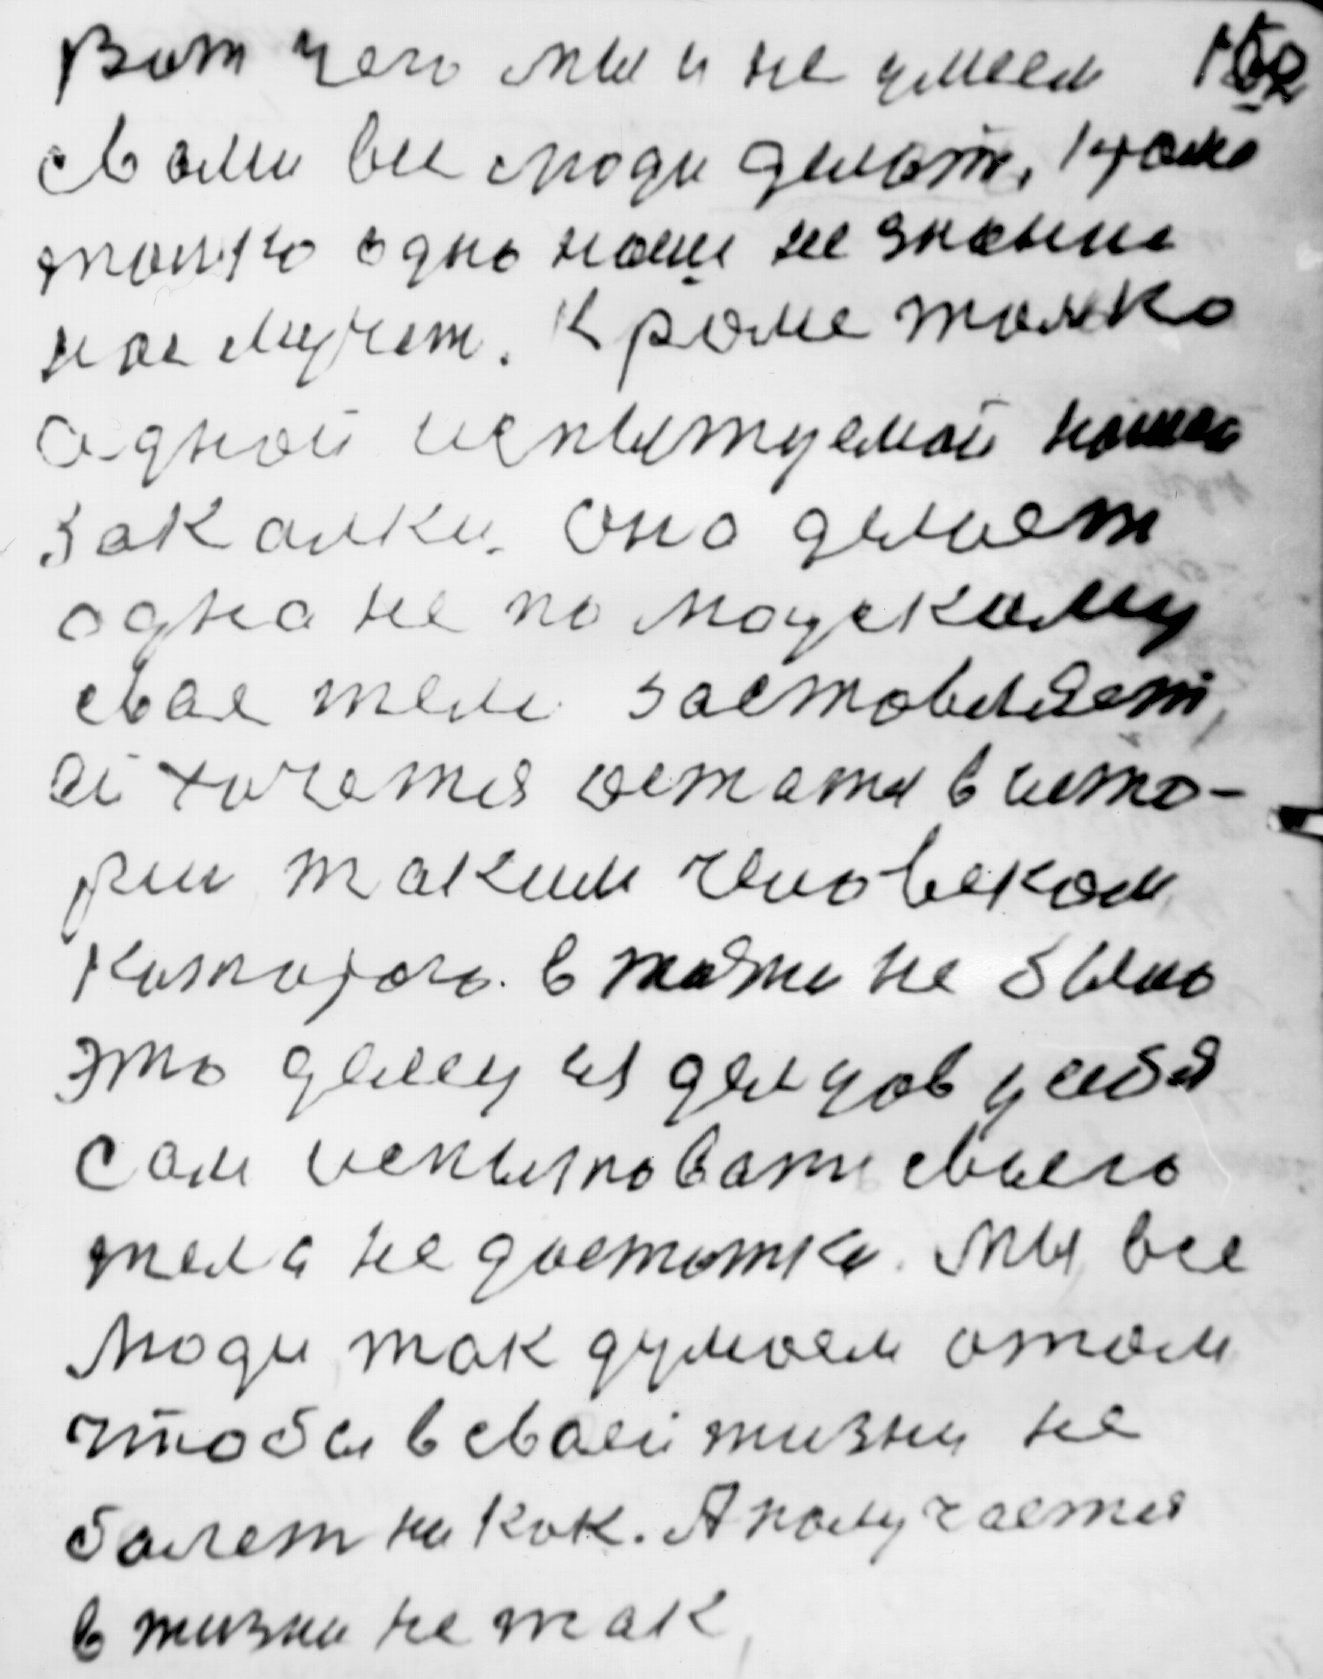 Вот чего мы и не умеем
с вами все люди делать. Кроме
только одно наше не знание
нас мучет. Кроме только
одной испытуемой нашей
закалки. Она делает
одна не по людскому
свое тело заставляет,
ей хочется остатя в исто-
рии таким человеком
которого в жизни не было
это делец из делцов у себя
сам испытовати своего
тела не достатка. Мы все
люди так думаем о том
чтобы в своей жизни не
болет ни как. А получается
в жизни не так,